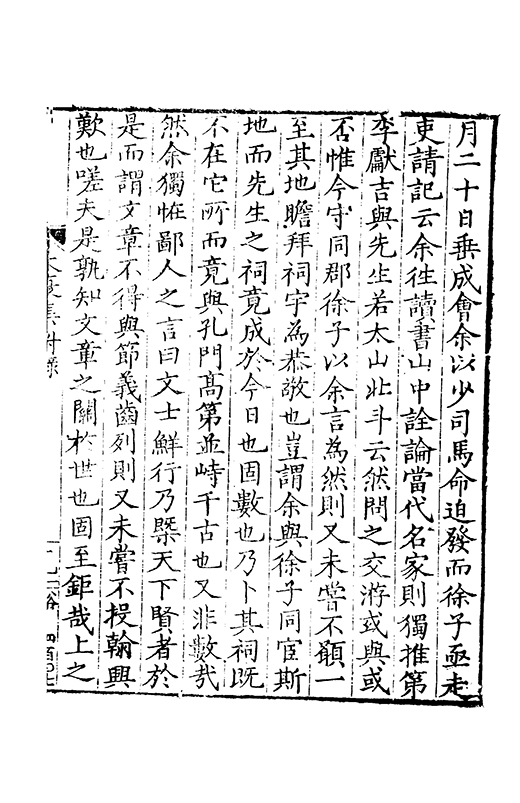 月二十日垂成會余以少司馬命迫發而徐子亟走
吏請記云余往讀書山中詮論當代名家則獨推第
李獻吉與先生若太山北斗云然問之交游或與或
否惟今守同郡徐子以余言為然則又未嘗不願一
至其地瞻拜祠宇為恭敬也豈謂余與徐子同宦斯
地而先生之祠竟成於今日也固數也乃卜其祠既
不在它所而竟與孔門高第並峙千古也又非數哉
然余獨恠鄙人之言曰文士鮮行乃槩天下賢者於
是而謂文章不得與節義齒列則又未嘗不投翰興
歎也嗟夫是孰知文章之關於世也固至鉅哉上之
大復集附錄